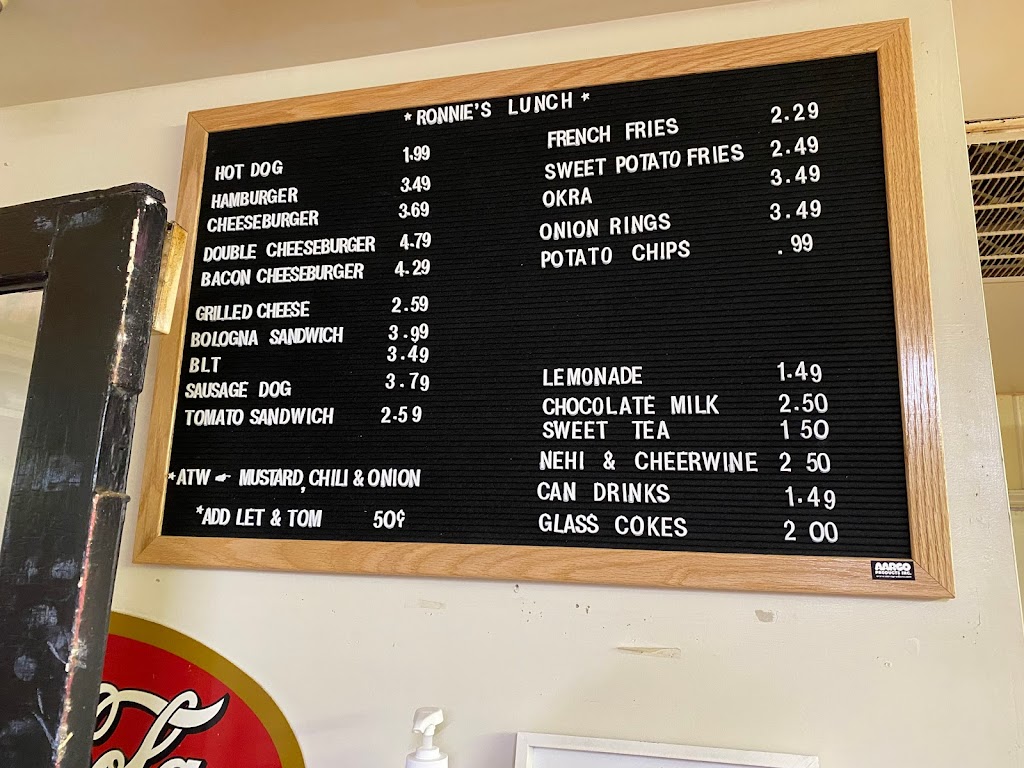 * RONNIE'S LUNCH *
HOT DOG 1.99
HAMBURGER 3.49
CHEESEBURGER 3.69
DOUBLE CHEESEBURGER 4.79
BACON CHEESEBURGER 4.29
GRILLED CHEESE 2.59
BOLOGNA SANDWICH 3.99
BLT 3.49
SAUSAGE DOG 3.79
TOMATO SANDWICH 2.59
*ATW ☛ MUSTARD, CHILI & ONION
*ADD LET & TOM 50¢
FRENCH FRIES 2.29
SWEET POTATO FRIES 2.49
OKRA 3.49
ONION RINGS 3.49
POTATO CHIPS .99
LEMONADE 1.49
CHOCOLATE MILK 2.50
SWEET TEA 1 50
NEHI & CHEERWINE 2 50
CAN DRINKS 1.49
GLASS COKES 2 00
AARCO
PRODUCTS INC.